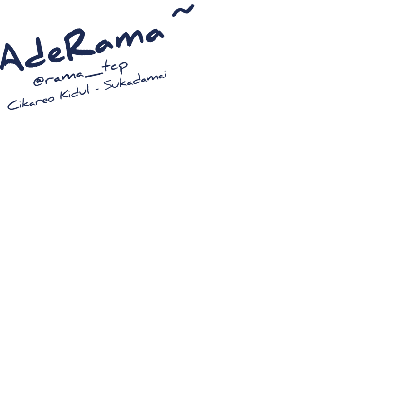 AdeRama ~
@rama__tcp
Cikareo Kidul - Sukadamai